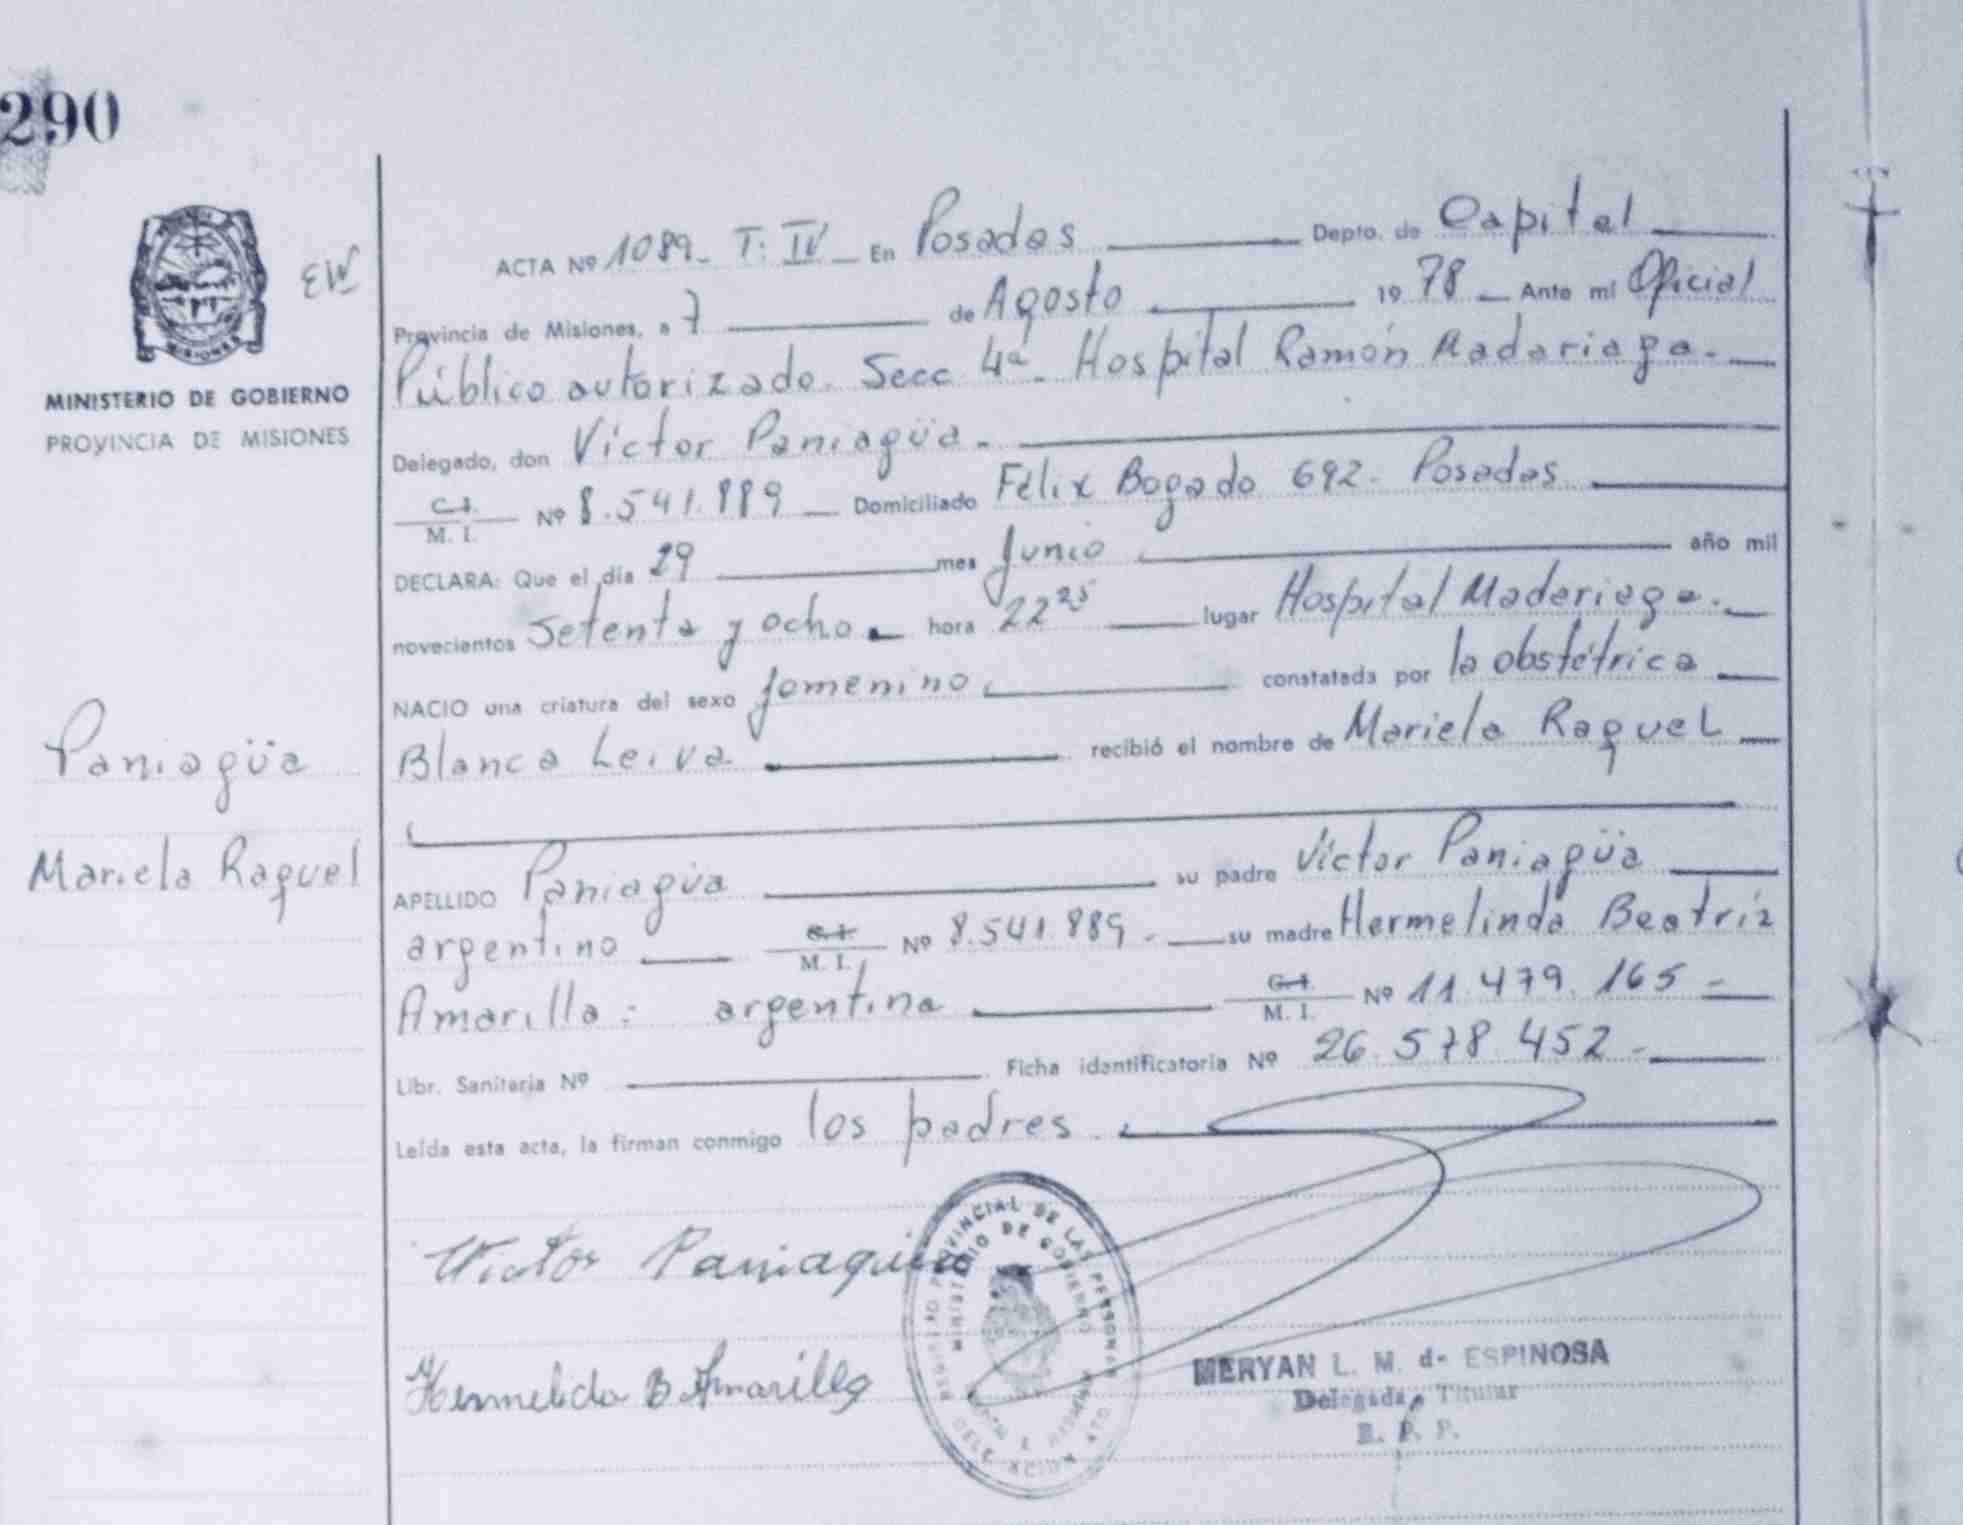 290
MISIONES
EW
MINISTERIO DE GOBIERNO
PROVINCIA DE MISIONES
Paniagüa
Mariela Raquel
ACTA Nº 1089_ T: IV _ En Posadas Depto. de Capital
Provincia de Misiones, a 7 de Agosto 19 78 _ Ante mi Oficial
Público autorizado. Secc 4ª. Hospital Ramón Madariaga.
Delegado, don Víctor Paniagüa.
C.I. M. I. Nº 8.541.889 _ Domiciliado Félix Bogado 692. Posadas
DECLARA: Que el día 29 mes Junio año mil
novecientos Setenta y ocho. hora 22 25 lugar Hospital Madariaga.
NACIO una criatura del sexo femenino constatada por la obstétrica
Blanca Leiva. recibió el nombre de Mariela Raquel
APELLIDO Paniagüa su padre Víctor Paniagüa
argentino C.I. M. I. Nº 8.541.889. su madre Hermelinda Beatríz
Amarilla: argentina C.I. M. I. Nº 11.479.165 -
Libr. Sanitaria Nº Ficha identificatoria Nº 26.578.452 -
Leída esta acta, la firman conmigo los padres.
Victor Paniagua
Hermelida B Amarilla
REGISTRO PROVINCIAL DE LAS PERSONAS
MINISTERIO DE GOBIERNO
MERYAN L. M. de ESPINOSA
Delegada Titular
R. P. P.